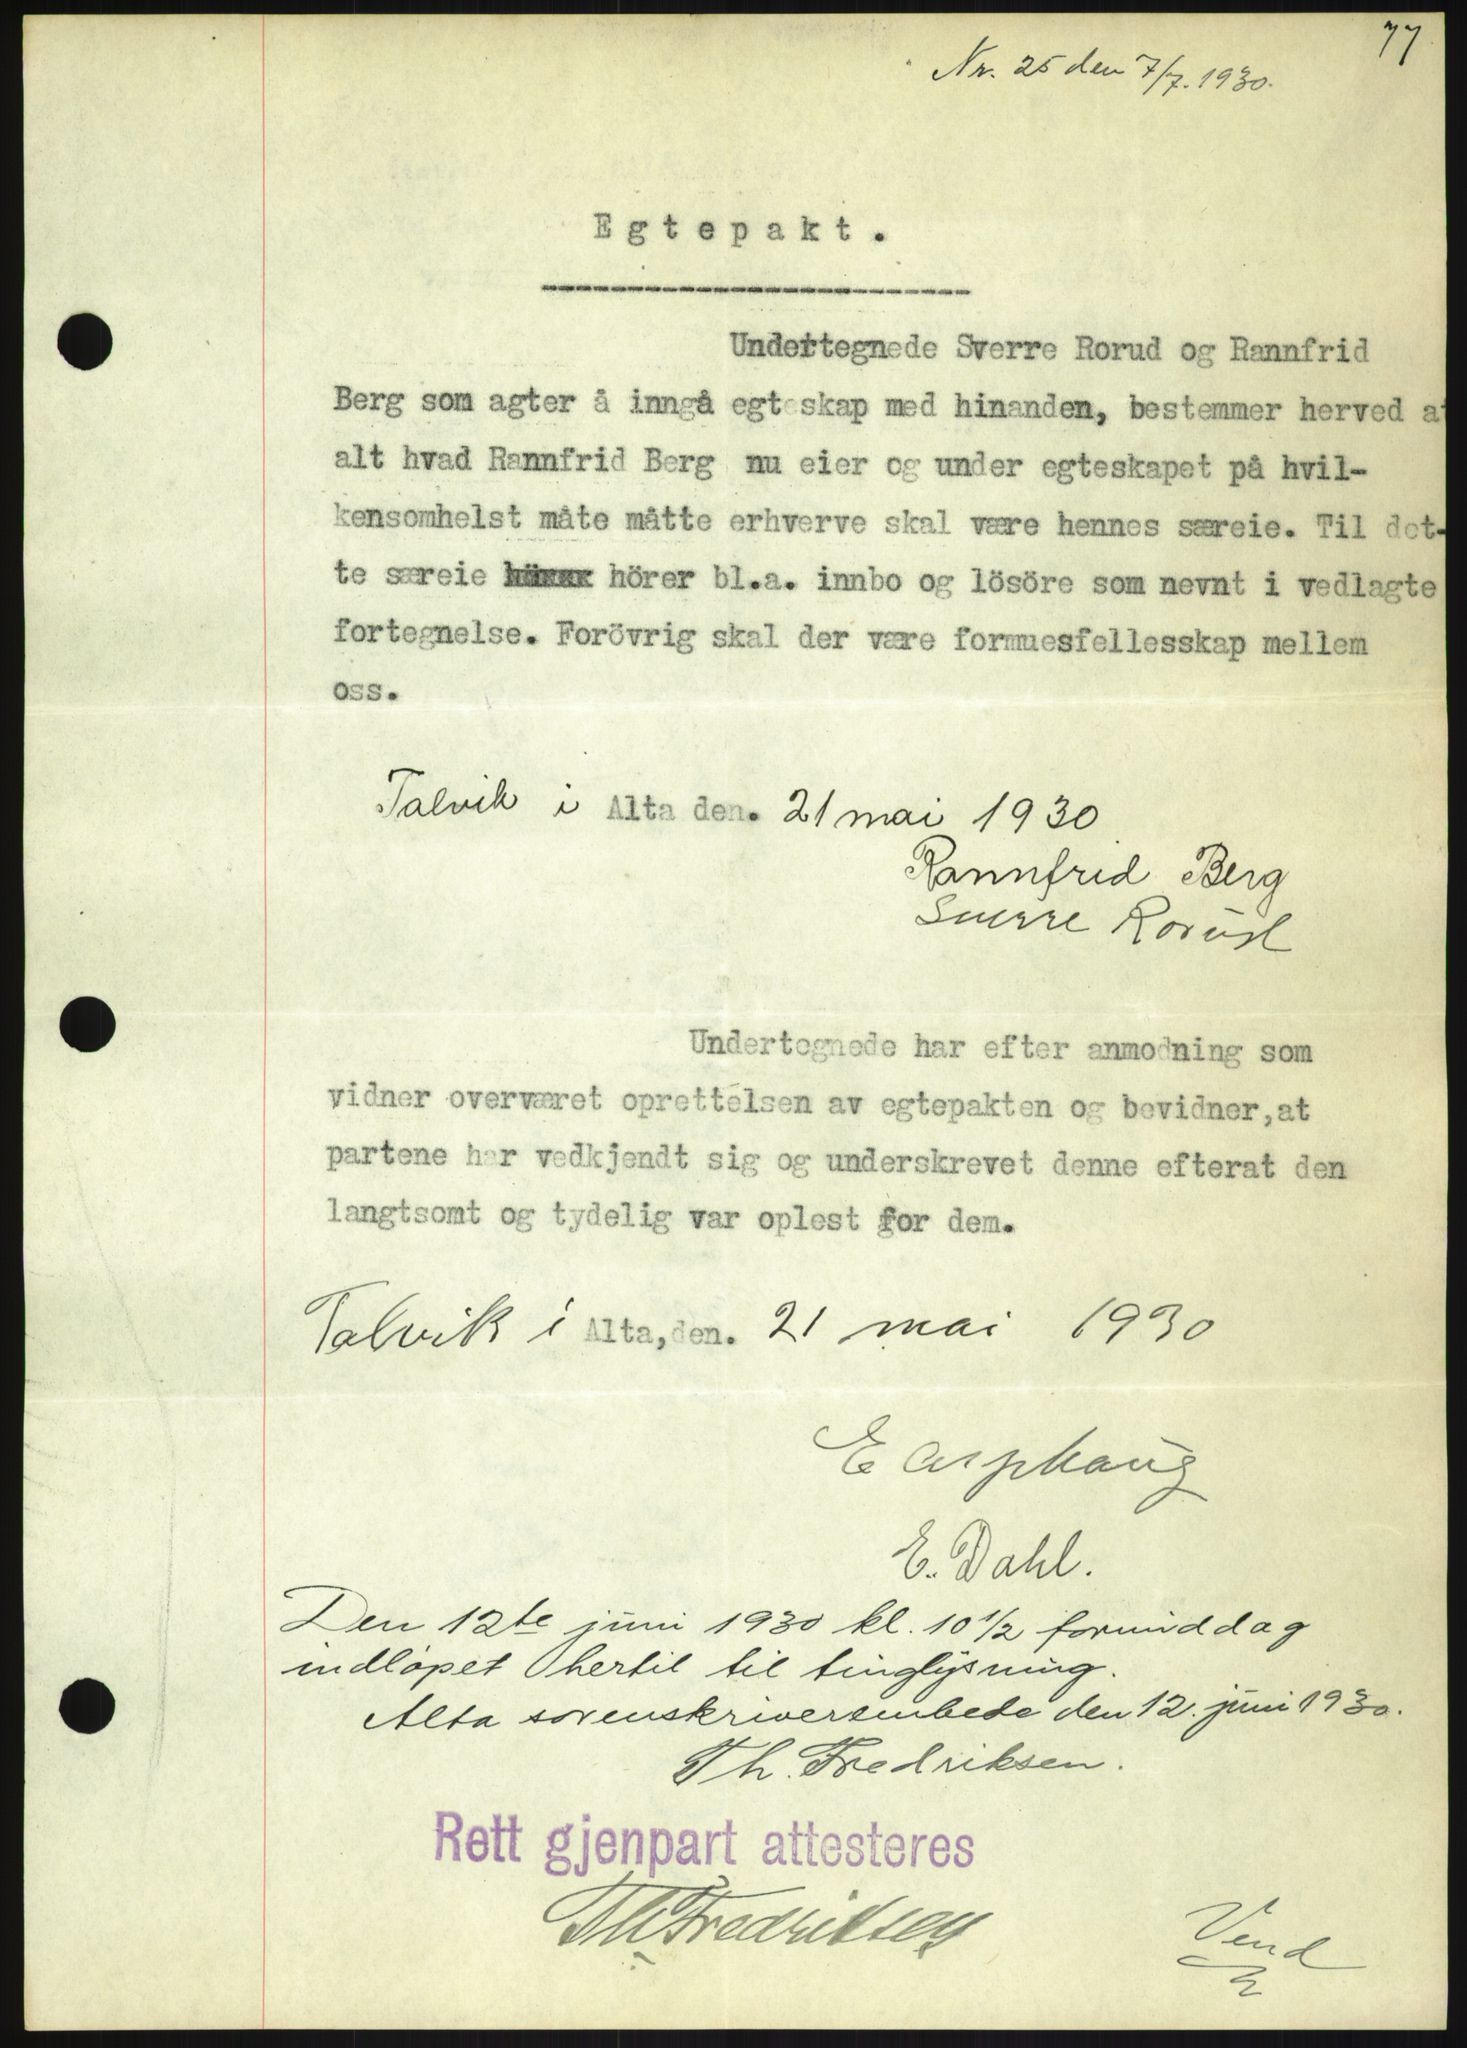 77
Nr. 25 den 7/7. 1930.
Egtepakt.
Undertegnede Sverre Rorud og Rannfrid
Berg som agter å inngå egteskap med hinanden, bestemmer herved at
alt hvad Rannfrid Berg nu eier og under egteskapet på hvil-
kensomhelst måte måtte erhverve skal være hennes særeie. Til det-
te særeie hörer bl.a. innbo og lösöre som nevnt i vedlagte
fortegnelse. Forövrig skal der være formuesfellesskap mellem
oss.
Talvik i Alta den. 21 mai 1930
Rannfrid Berg
Sverre Rorud
Undertegnede har efter anmodning som
vidner overværet oprettelsen av egtepakten og bevidner,at
partene har vedkjendt sig og underskrevet denne efterat den
langtsomt og tydelig var oplest for dem.
Talvik i Alta,den. 21 mai 1930
E Asphaug
E. Dahl.
Den 12te juni 1930 kl. 10 1/2 formiddag
indløpet hertil til tinglysning.
Alta sorenskriverembede den 12. juni 1930.
Th. Fredriksen.
Rett gjenpart attesteres
Th Fredriksen
Vend